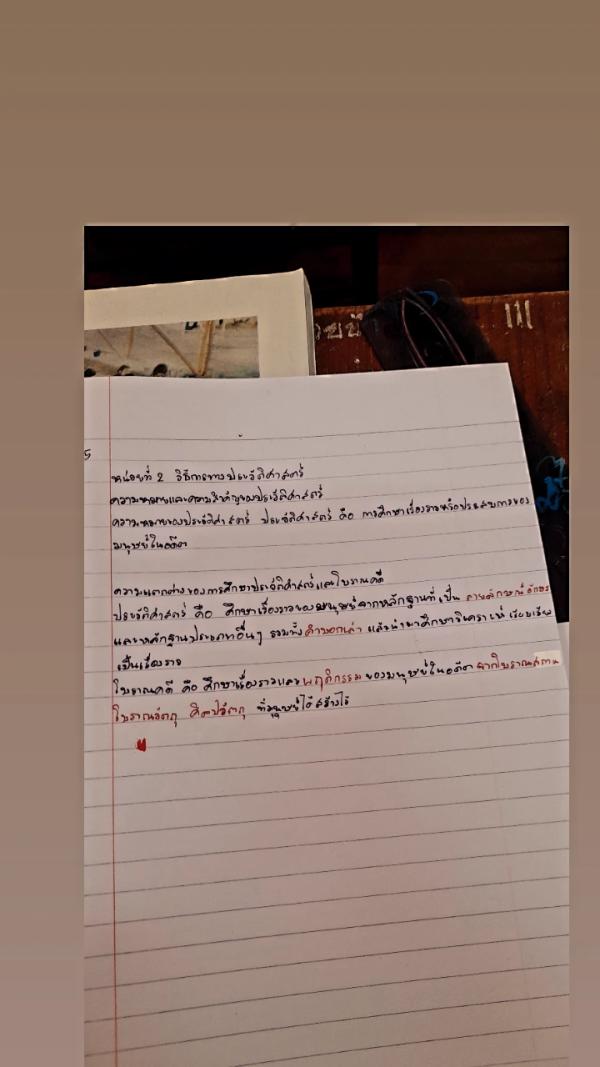 5
หน่วยที่ 2 วิธีการทางประวัติศาสตร์
ความหมายและความสำคัญของประวัติศาสตร์
ความหมายของประวัติศาสตร์ ประวัติศาสตร์ คือ การศึกษาเรื่องราวหรือประสบการของ
มนุษย์ในอดีต
ความแตกต่างของการศึกษาประวัติศาสตร์และโบราณคดี
ประวัติศาสตร์ คือ ศึกษาเรื่องราวของมนุษย์จากหลักฐานที่เป็น ลายลักษณ์อักษร
และหลักฐานประเภทอื่นๆ รวมทั้งคำบอกเล่า แล้วนำมาศึกษาวิเคราะห์ เรียบเรียง
เป็นเรื่องราว
โบราณคดี คือ ศึกษาเรื่องราวและพฤติกรรมของมนุษย์ในอดีต จากโบราณสถาน
โบราณวัตถุ ศิลปวัตถุ ที่มนุษย์ได้สร้างไว้